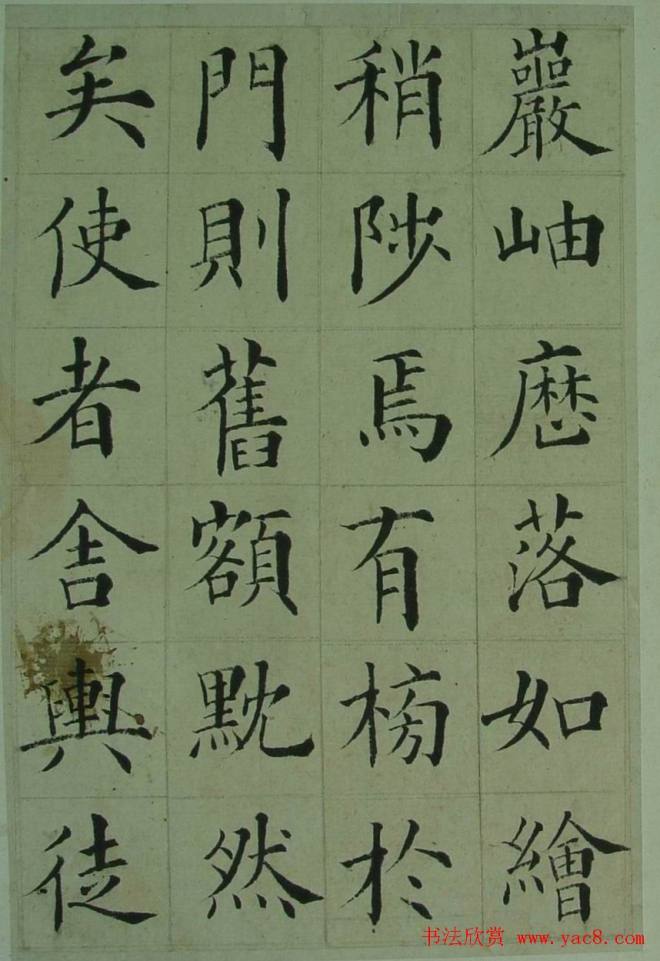 巖岫歷落如繪
稍陟焉有榜於
門則舊額黕然
矣使者舍輿徒
书法欣赏 www.yac8.com